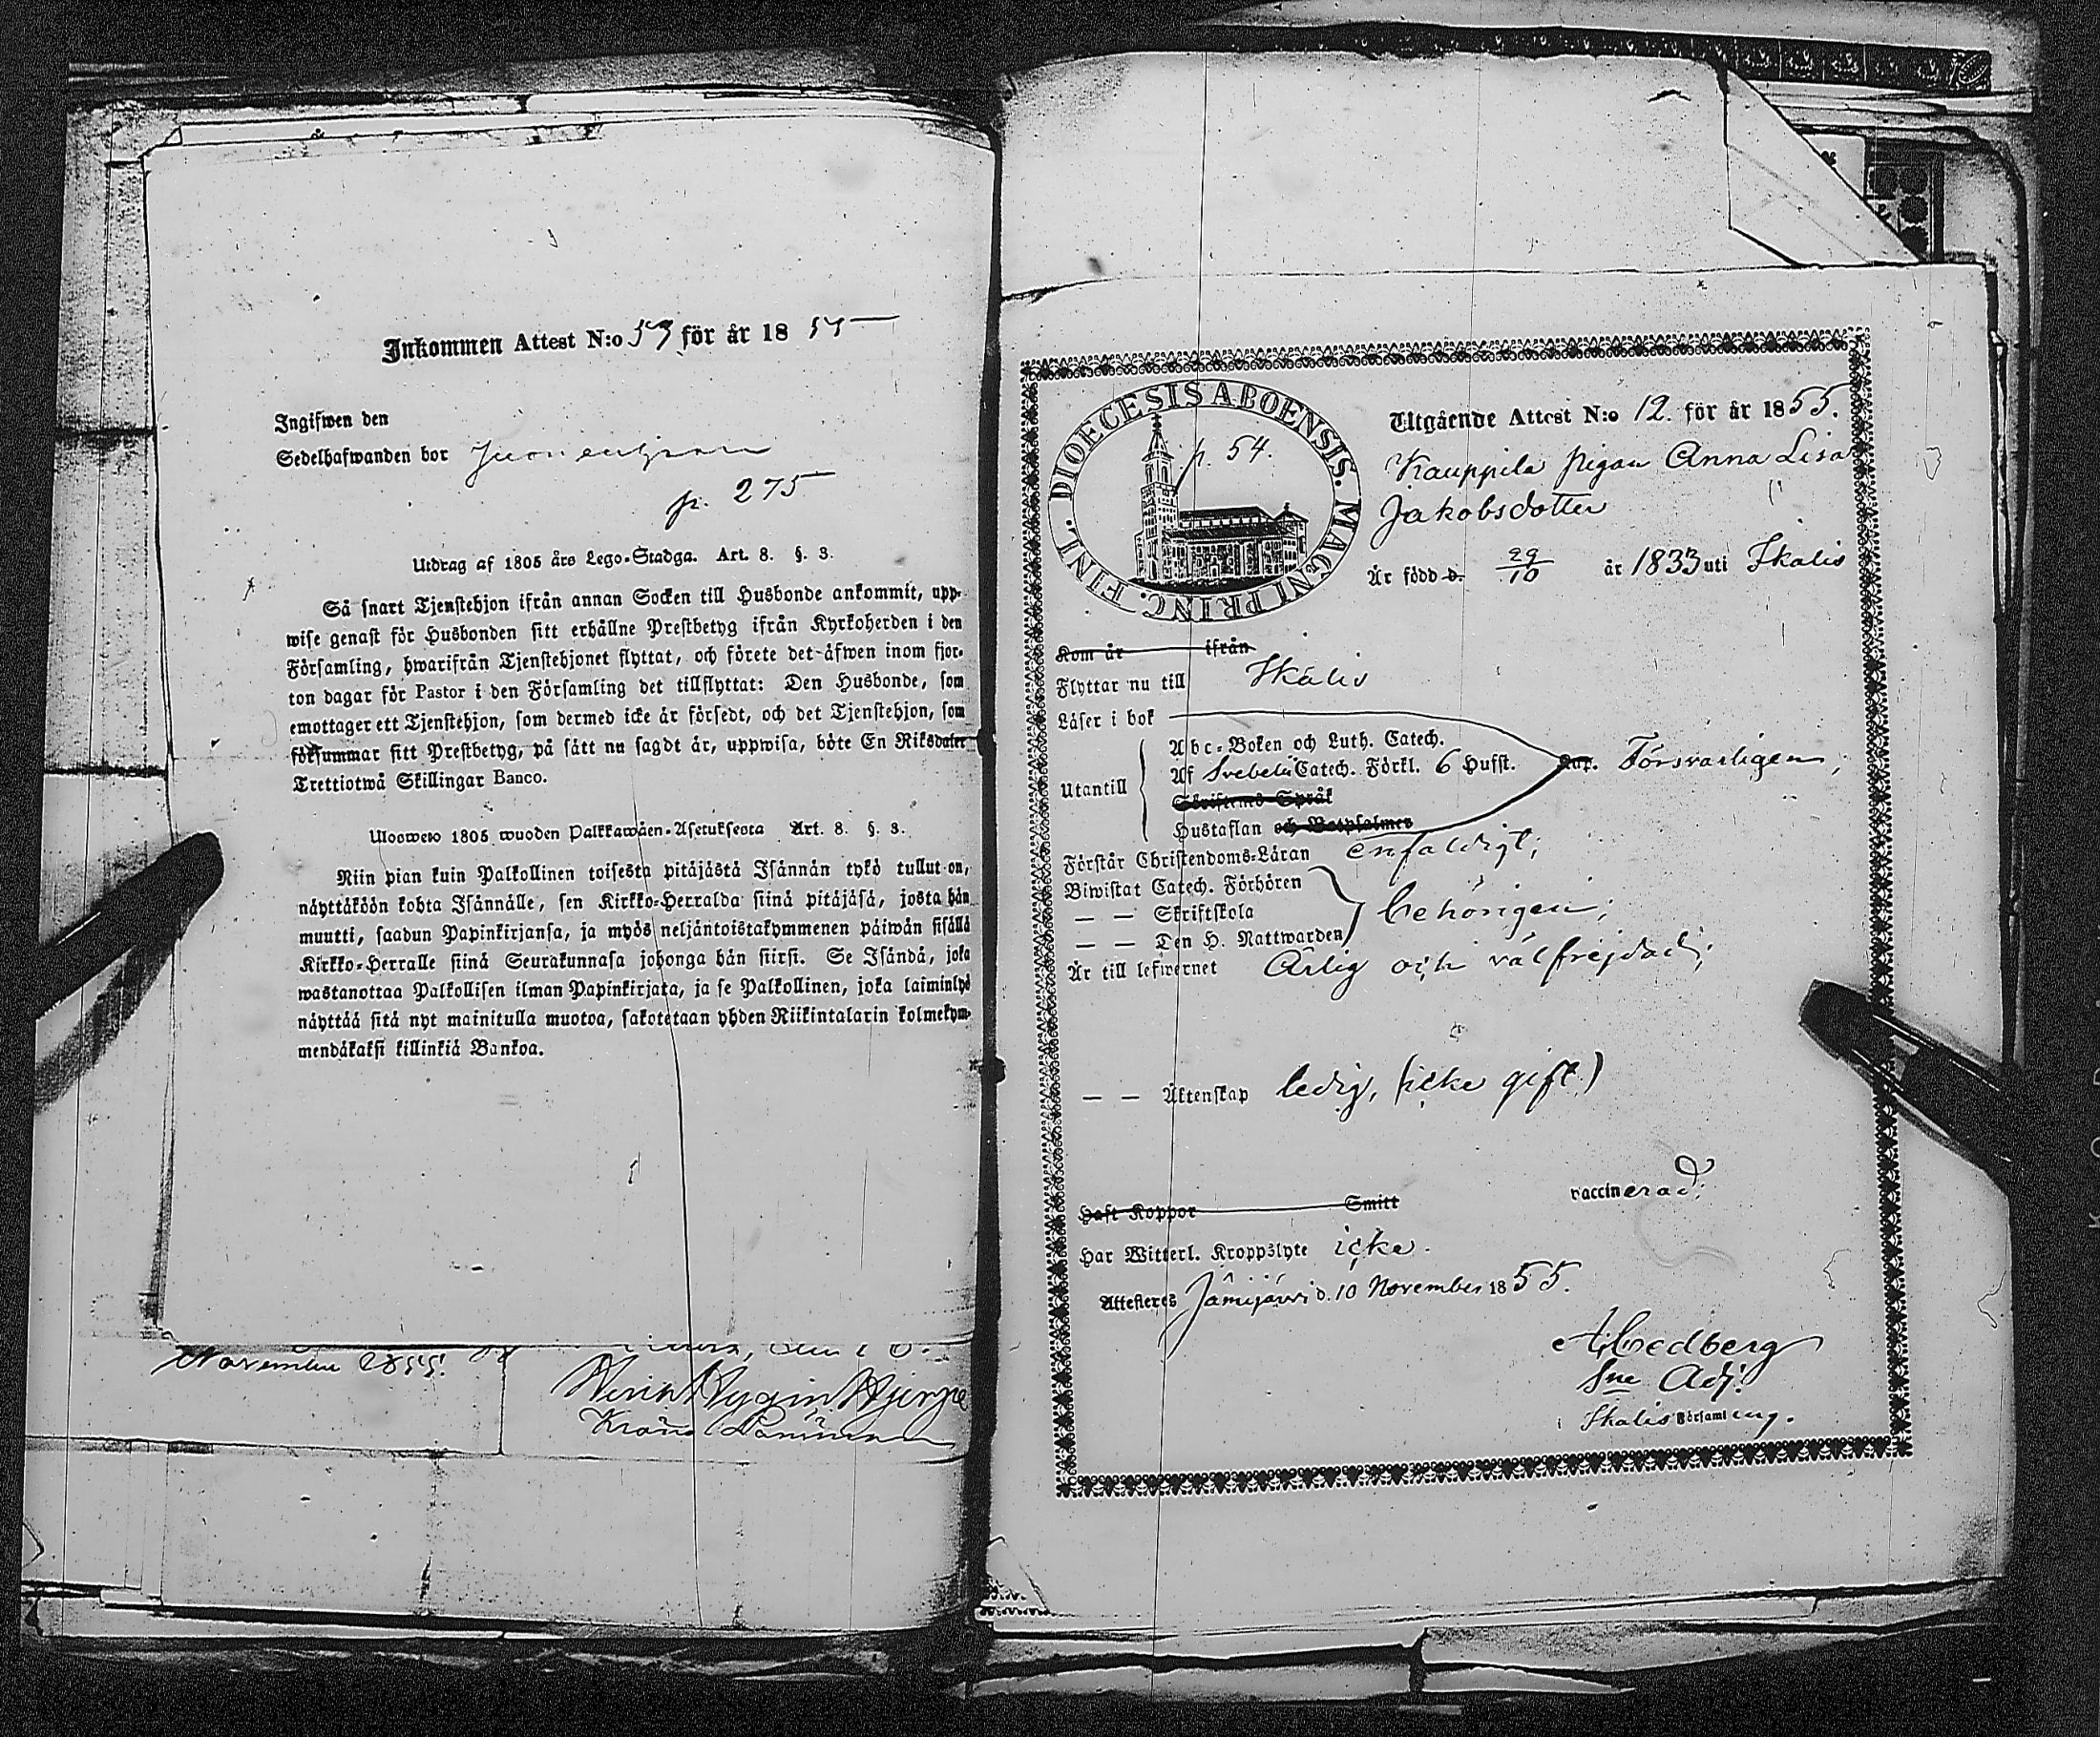 Inkommen Attest N:o 53 för år 1855
Ingifwen den
Sedelhafwanden bor
p. 275
Utdrag af 1805 års Lego-Stadga. Art. 8. §. 3.
Så snart Tjenstehjon ifrån annan Socken till Husbonde ankommit, upp-
wise genast för Husbonden sitt erhållne Prestbetyg ifrån Kyrkoherden i den
Församling, hwarifrån Tjenstehjonet flyttat, och förete det äfwen inom fjor-
ton dagar för Pastor i den Församling det tillflyttat: Den Husbonde, som
emottager ett Tjenstehjon, som dermed icke är försedt, och det Tjenstehjon, som
försummar sitt Prestbetyg, på sätt nu sagdt är, uppwisa, böte En Riksdaler
Trettiotwå Skillingar Banco.
Ulosweto 1805 wuoden Palkkawäen-Asetuksesta Art. 8. §. 3.
Niin pian kuin Palkollinen toisesta pitäjästä Isännän tykö tullut on,
näyttäköön kohta Isännälle, sen Kirkko-Herralda siinä pitäjäsä, josta hän
muutti, saadun Papinkirjansa, ja myös neljäntoistakymmenen päiwän sisällä
Kirkko-Herralle siinä Seurakunnasa johonga hän siirsi. Se Isändä, joka
wastanottaa Palkollisen ilman Papinkirjata, ja se Palkollinen, joka laiminlyö
näyttää sitä nyt mainitulla muotoa, sakotetaan yhden Riikintalarin kolmekym-
mendäkaksi killinkiä Bankoa.
November 1855.
DIOECESIS ABOENSIS. MAGNI PRINC. FINL.
p. 54.
Utgående Attest N:o 12. för år 1855.
Kauppila pigan Anna Lisa
Jakobsdotter
Är född d. 29/10 år 1833 uti Ikalis
Kom år ifrån
Flyttar nu till Ikalis
Läser i bok
Utantill
Abc-Boken och Luth. Catech.
Af Svebelii Catech. Förkl. 6 Hufst. Försvarligen;
Skriftens Språk
Hustaflan och Botpsalmer
Förstår Christendoms-Läran enfaldigt;
Biwistat Catech. Förhören
— — Skriftskola behörigen;
— — Den H. Nattwarden
Är till lefwernet Ärlig och välfrejdad;
— — Äktenskap ledig, (icke gift.)
vaccinerad;
Haft Koppor Smitt
Har Witterl. Kroppslyte icke.
Attesteres Jämijärvi d. 10 November 1855.
A. Cedberg
Sne Adj.
i Ikalis Församling.